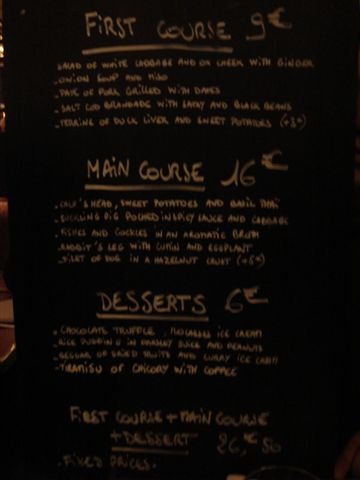 FIRST COURSE 9€
SALAD OF WHITE CABBAGE AND OX CHEEK WITH GINGER
- ONION SOUP AND MISO
- PAVE OF PORK GRILLED WITH DATES
- SALT COD BRANDADE WITH SATAY AND BLACK BEANS
- TERRINE OF DUCK LIVER AND SWEET POTATOES (+3€)
MAIN COURSE 16€
- CALF'S HEAD, SWEET POTATOES AND BASIL THAI
- SUCKLING PIG POCHED IN SPICY SAUCE AND CABBAGE
- FISHES AND COCKLES IN AN AROMATIC BROTH
- RABBIT'S LEG WITH CUMIN AND EGGPLANT
OF IN A HAZELNUT CRUST
DESSERTS 6€
- CHOCOLATE TRUFFLE, ICE CREAM
- RICE PUDDING IN JUICE AND PEANUTS
- OF DRIED FRUITS AND CURRY ICE CREAM
- TIRAMISU OF CHICORY WITH COFFEE
FIRST COURSE + MAIN COURSE
+ DESSERT 26,€50
- FIXED PRICES.